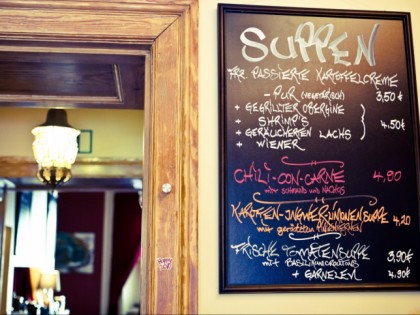 SUPPEN
FR. PASSIERTE KARTOFFELCREME
- PUR (VEGETARISCH) 3,50 €
+ GEGRILLTER OBERGINE
+ SHRIMP'S
+ GERÄUCHERTEN LACHS 4,50€
+ WIENER
CHILI-CON-CARNE 4,90
mit SCHMAND und NACHOS
KAROTTEN-INGWER-LINSENSUPPE 4,20
mit gerösteten
FRISCHE TOMATENSUPPE 3,90€
mit BASILIKUMCROUTONS
+ GARNELEN 4,90€